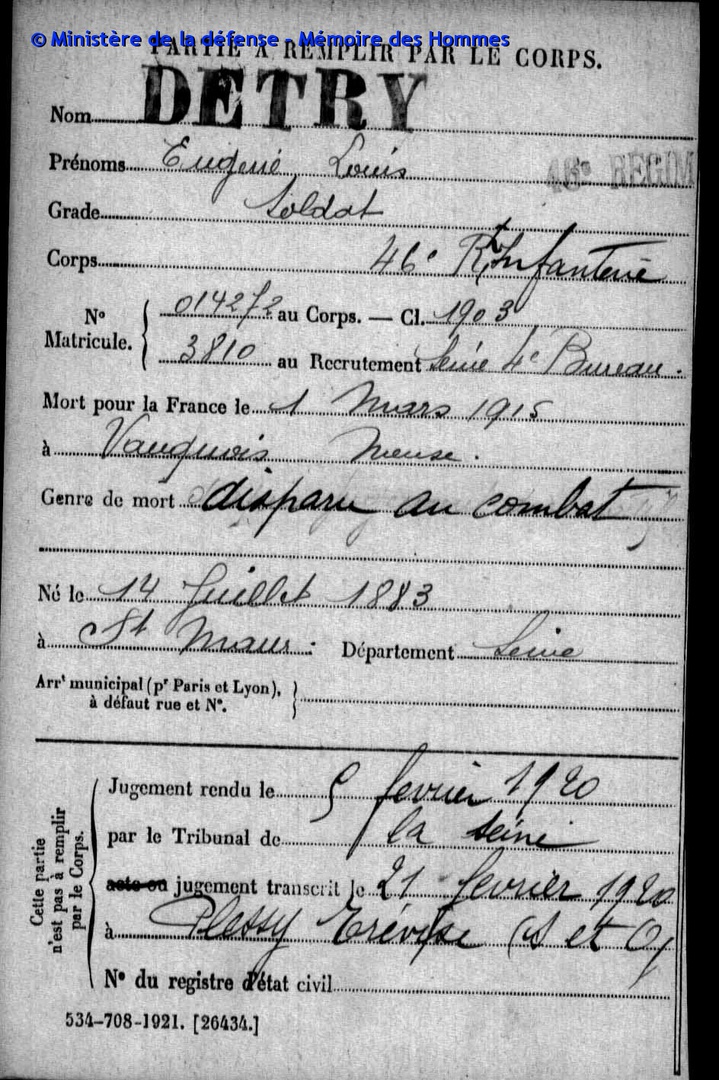 © Ministère de la défense - Mémoire des Hommes
PARTIE A REMPLIR PAR LE CORPS.
Nom DETRY
Prénoms Eugène Louis
46e REGIM
Grade Soldat
Corps 46e Rt Infanterie
No Matricule. { 014272 au Corps. — Cl. 1903
3810 au Recrutement Seine 4e Bureau.
Mort pour la France le 1 Mars 1915
à Vauquois Meuse.
Genre de mort disparu au combat
Né le 14 Juillet 1883
à St Maur. Département Seine
Arrt municipal (pr Paris et Lyon),
à défaut rue et No. }
Cette partie
n'est pas à remplir
par le Corps.
Jugement rendu le 5 fevrier 1920
par le Tribunal de la seine
acte ou jugement transcrit le 21 fevrier 1920
à Plessy Trévise (S et O)
No du registre d'état civil
534-708-1921. [26434.]